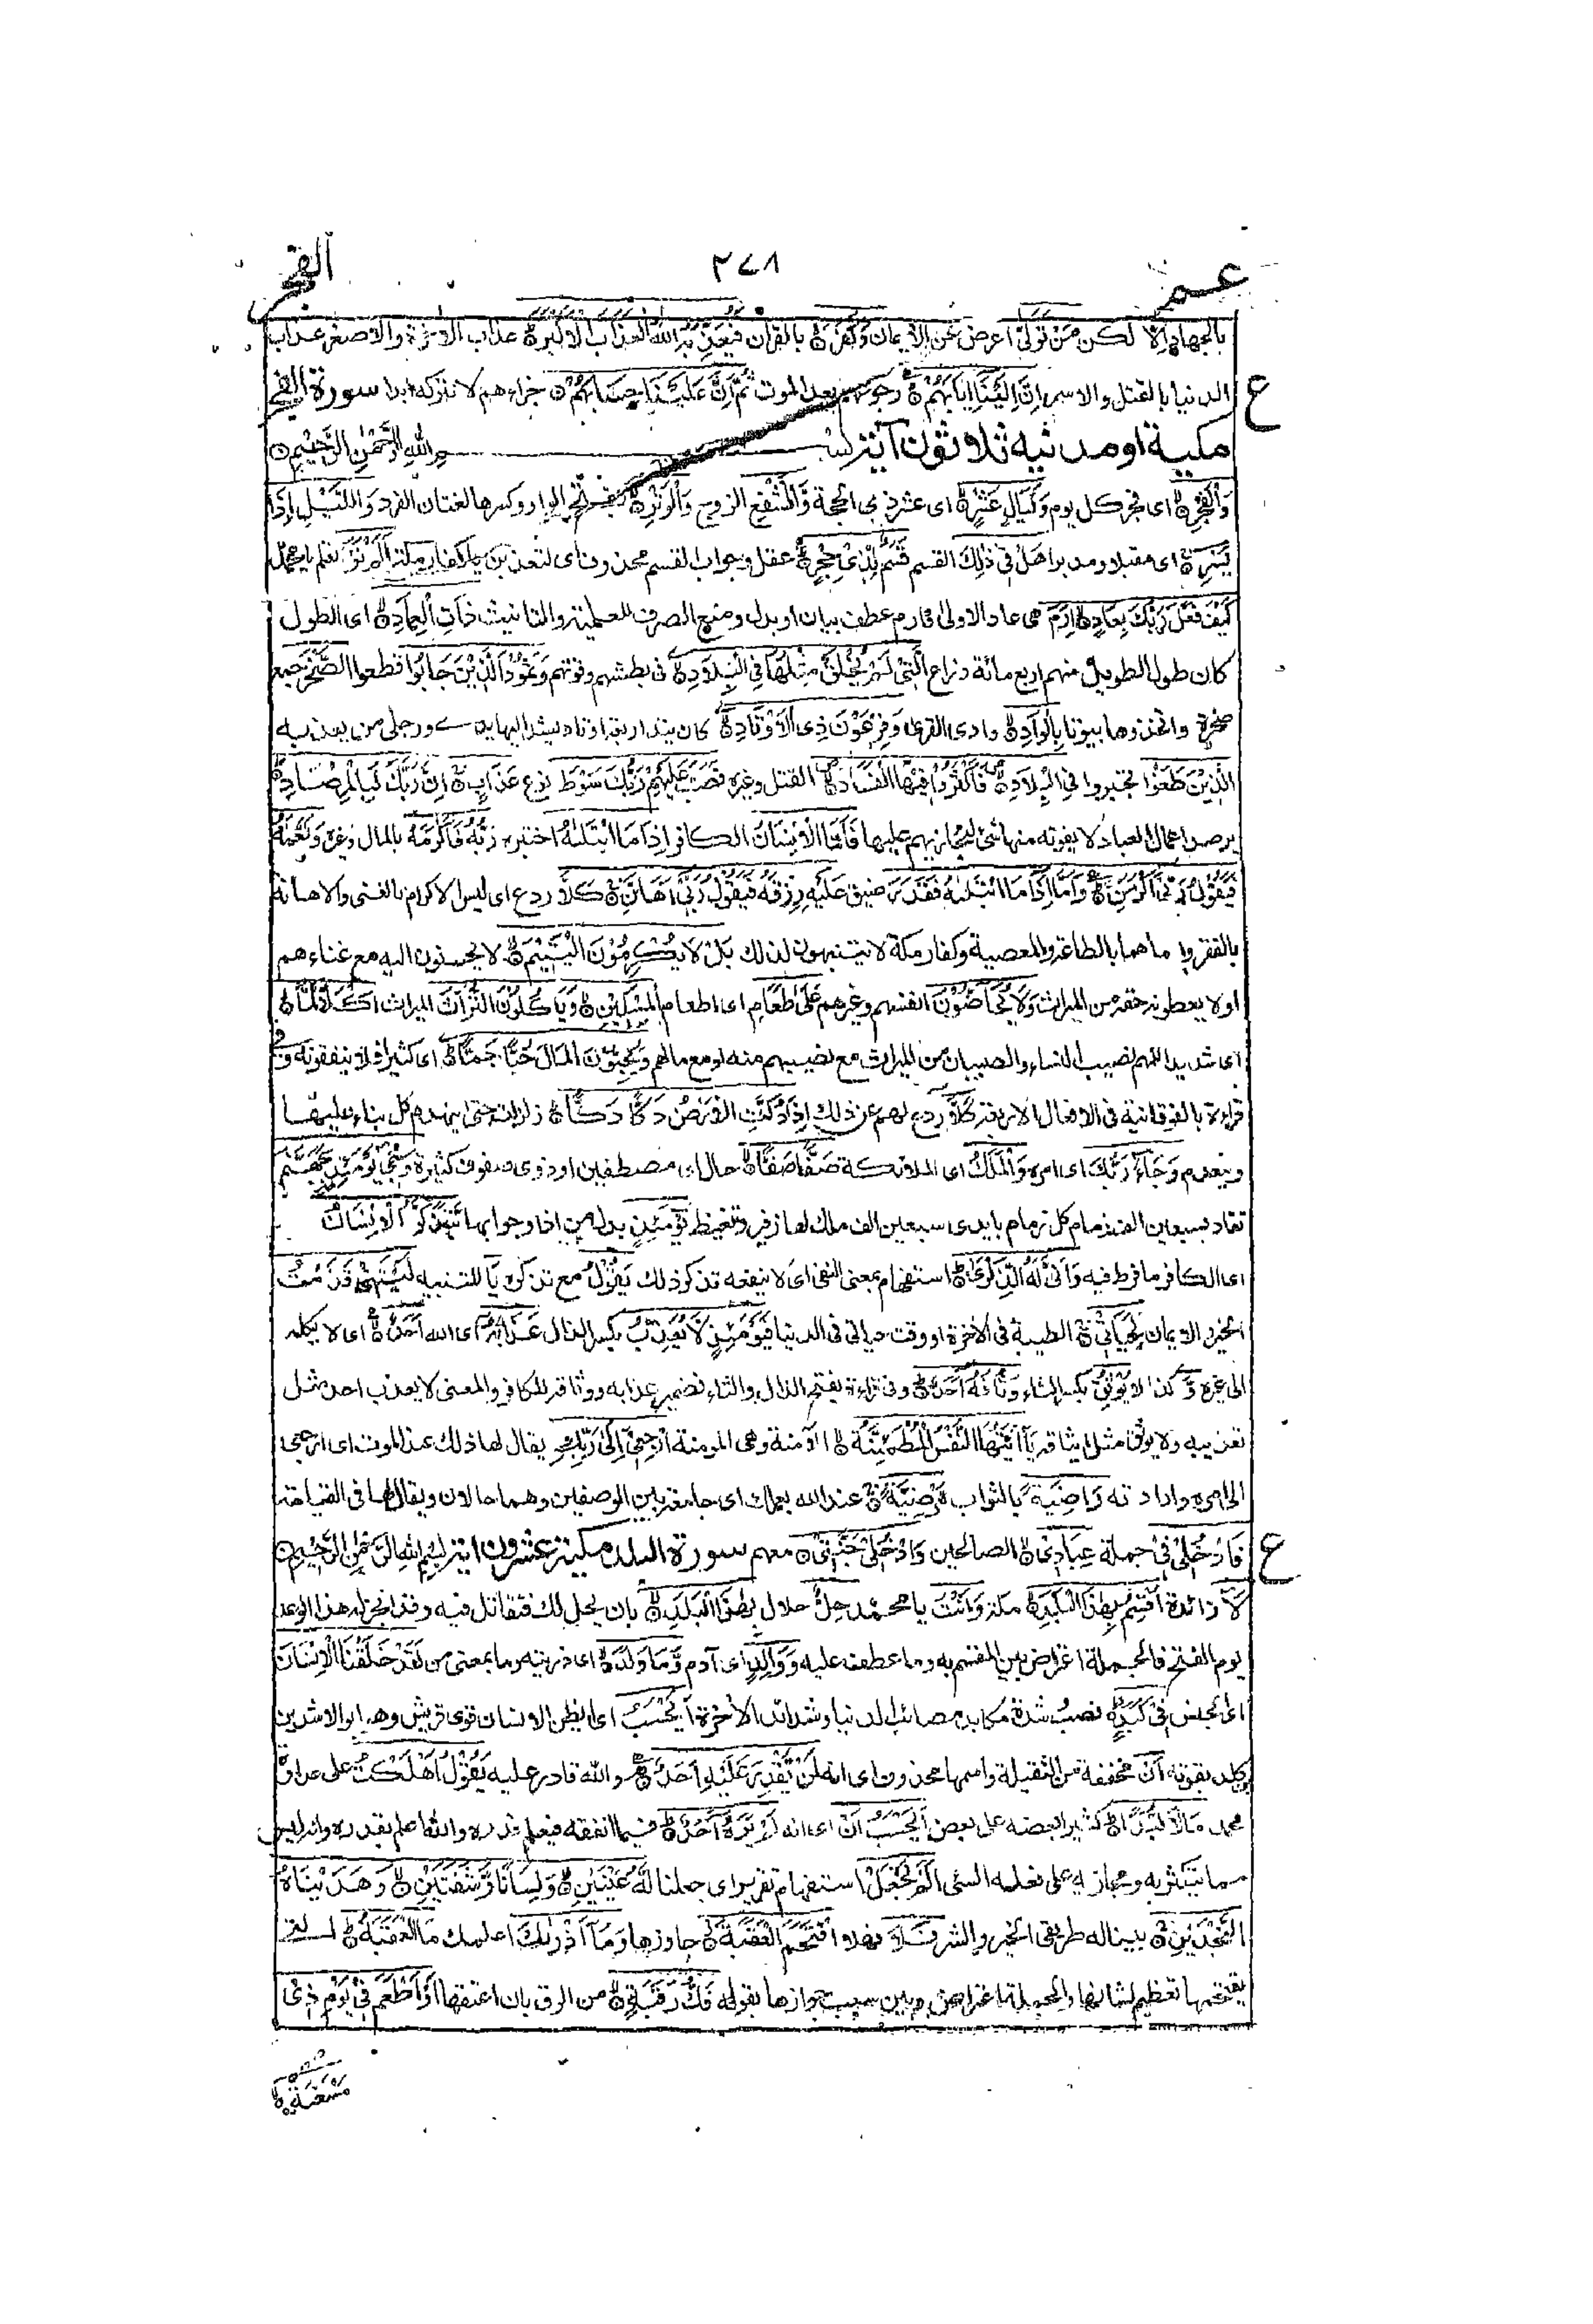 عم ٢٧٨ الفجر
بالجهاد اِلَّا لكن مَنْ تَوَلّٰى اعرض عن الايمان وَكَفَرَ بالقران فَيُعَذِّبُهُ اللّٰهُ الْعَذَابَ الْاَكْبَرَ عذاب الاخرة والاصغر عذاب
الدنيا بالقتل والاسر اِنَّ اِلَيْنَا اِيَابَهُمْ رجوعهم بعد الموت ثُمَّ اِنَّ عَلَيْنَا حِسَابَهُمْ جزاءهم لا نتركه ابدا سورة الفجر
مكية او مدنية ثلاثون آية بسم اللّٰهِ الرَّحْمٰنِ الرَّحِيْمِ
وَالْفَجْرِ اى فجر كل يوم وَلَيَالٍ عَشْرٍ اى عشر ذى الحجة وَّالشَّفْعِ الزوج وَالْوَتْرِ بفتح الواو وكسرها لغتان الفرد وَاللَّيْلِ اِذَا
يَسْرِ اى مقبلا ومدبرا هَلْ فِىْ ذٰلِكَ القسم قَسَمٌ لِّذِىْ حِجْرٍ عقل وجواب القسم محذوف اى لتعذبن يا كفار مكة اَلَمْ تَرَ تعلم يا محمد
كَيْفَ فَعَلَ رَبُّكَ بِعَادٍ اِرَمَ هى عاد الاولى فارم عطف بيان او بدل ومنع الصرف للعلمية والتانيث ذَاتِ الْعِمَادِ اى الطول
كان طول الطويل منهم اربع مائة ذراع الَّتِىْ لَمْ يُخْلَقْ مِثْلُهَا فِى الْبِلَادِ فى بطشهم وقوتهم وَثَمُوْدَ الَّذِيْنَ جَابُوا قطعوا الصَّخْرَ جمع
صخرة واتخذوها بيوتا بِالْوَادِ وادى القرى وَفِرْعَوْنَ ذِى الْاَوْتَادِ كان يتد اربعة اوتاد يشد اليها يدى ورجلى من يعذبه
الَّذِيْنَ طَغَوْا تجبروا فِى الْبِلَادِ فَاَكْثَرُوْا فِيْهَا الْفَسَادَ القتل وغيره فَصَبَّ عَلَيْهِمْ رَبُّكَ سَوْطَ نوع عَذَابٍ اِنَّ رَبَّكَ لَبِالْمِرْصَادِ
يرصد اعمال العباد لا يفوته منها شئ ليجازيهم عليها فَاَمَّا الْاِنْسَانُ الكافر اِذَا مَا ابْتَلٰىهُ اختبره رَبُّهٗ فَاَكْرَمَهٗ بالمال وغيره وَنَعَّمَهٗ
فَيَقُوْلُ رَبِّىْ اَكْرَمَنِ وَاَمَّا اِذَا مَا ابْتَلٰىهُ فَقَدَرَ ضيق عَلَيْهِ رِزْقَهٗ فَيَقُوْلُ رَبِّىْ اَهَانَنِ كَلَّا ردع اى ليس الاكرام بالغنى والاهانة
بالفقر وانما هما بالطاعة والمعصية وكفار مكة لا يتنبهون لذلك بَلْ لَا يُكْرِمُوْنَ الْيَتِيْمَ لا يحسنون اليه مع غناءهم
او لا يعطونه حقه من الميراث وَلَا يَحَاضُّوْنَ انفسهم وغيرهم عَلٰى طَعَامِ اى اطعام الْمِسْكِيْنِ وَيَاْكُلُوْنَ التُّرَاثَ الميراث اَكْلًا لَّمًّا
اى شديدا للهم نصيب النساء والصبيان من الميراث مع نصيبهم منه او مع مالهم وَيُحِبُّوْنَ الْمَالَ حُبًّا جَمًّا اى كثيرا فلا ينفقونه وفى
قراءة بالفوقانية فى الافعال الاربعة كَلَّا ردع لهم عن ذلك اِذَا دُكَّتِ الْاَرْضُ دَكًّا دَكًّا زلزلت حتى ينهدم كل بناء عليها
وينعدم وَجَاءَ رَبُّكَ اى امره وَالْمَلَكُ اى الملائكة صَفًّا صَفًّا حال اى مصطفين او ذوى صفوف كثيرة وَجِىْءَ يَوْمَئِذٍ بِجَهَنَّمَ
تقاد بسبعين الف زمام كل زمام بايدى سبعين الف ملك لها زفير وتغيظ يَوْمَئِذٍ بدل من اذا وجوابها يَتَذَكَّرُ الْاِنْسَانُ
اى الكافر ما فرط فيه وَاَنّٰى لَهُ الذِّكْرٰى استفهام بمعنى النفى اى لا ينفعه تذكره ذلك يَقُوْلُ مع تذكره يَا للتنبيه لَيْتَنِىْ قَدَّمْتُ
الخير والايمان لِحَيَاتِىْ الطيبة فى الاخرة او وقت حياتى فى الدنيا فَيَوْمَئِذٍ لَّا يُعَذِّبُ بكسر الذال عَذَابَهٗ اى الله اَحَدٌ اى لا يكله
الى غيره وَ كذا لَا يُوْثِقُ بكسر الثاء وَثَاقَهٗ اَحَدٌ وفى قراءة بفتح الذال والثاء فضمير عذابه ووثاقه للكافر والمعنى لا يعذب احد مثل
تعذيبه ولا يوثق مثل ايثاقه يَا اَيَّتُهَا النَّفْسُ الْمُطْمَئِنَّةُ الآمنة وهى المومنة ارْجِعِىْ اِلٰى رَبِّكِ يقال لها ذلك عند الموت اى ارجعى
الى امره وارادته رَاضِيَةً بالثواب مَّرْضِيَّةً عند الله بعملك اى جامعة بين الوصفين وهما حالان ويقال لها فى القيامة
فَادْخُلِىْ فِىْ جملة عِبَادِىْ الصالحين وَادْخُلِىْ جَنَّتِىْ معهم سورة البلد مكية عشرون اية بِسْمِ اللّٰهِ الرَّحْمٰنِ الرَّحِيْمِ
لَا زائدة اُقْسِمُ بِهٰذَا الْبَلَدِ مكة وَاَنْتَ يا محمد حِلٌّ حلال بِهٰذَا الْبَلَدِ بان يحل لك فتقاتل فيه وقد انجز له هذا الوعد
يوم الفتح فالجملة اعتراض بين المقسم به وما عطف عليه وَوَالِدٍ اى آدم وَّمَا وَلَدَ اى ذريته وما بمعنى من لَقَدْ خَلَقْنَا الْاِنْسَانَ
اى الجنس فِىْ كَبَدٍ نصب شدة مكابد مصائب الدنيا وشدائد الاخرة اَيَحْسَبُ اى ايظن الانسان قوى قريش وهو ابو الاشدين
بن كلدة بقوته اَنْ مخففة من الثقيلة واسمها محذوف اى انه لَنْ يَّقْدِرَ عَلَيْهِ اَحَدٌ والله قادر عليه يَقُوْلُ اَهْلَكْتُ على عداوة
محمد مَالًا لُّبَدًا كثيرا بعضه على بعض اَيَحْسَبُ اَنْ اى انه لَّمْ يَرَهٗ اَحَدٌ فيما انفقه فيعلم قدره والله اعلم بقدره وانه ليس
مما يتكثر به ومجازيه على فعله السئى اَلَمْ نَجْعَلْ استفهام تقرير اى جعلنا لَّهٗ عَيْنَيْنِ وَلِسَانًا وَّشَفَتَيْنِ وَهَدَيْنَاهُ
النَّجْدَيْنِ بينا له طريقى الخير والشر فَلَا فهلا اقْتَحَمَ الْعَقَبَةَ جاوزها وَمَا اَدْرٰىكَ اعلمك مَا الْعَقَبَةُ التى
يقتحمها تعظيم لشانها والجملة اعتراض وبين سبب جوازها بقوله فَكُّ رَقَبَةٍ من الرق بان اعتقها اَوْ اَطْعَمَ فِىْ يَوْمٍ ذِىْ
مَسْغَبَةٍ
ع
ع